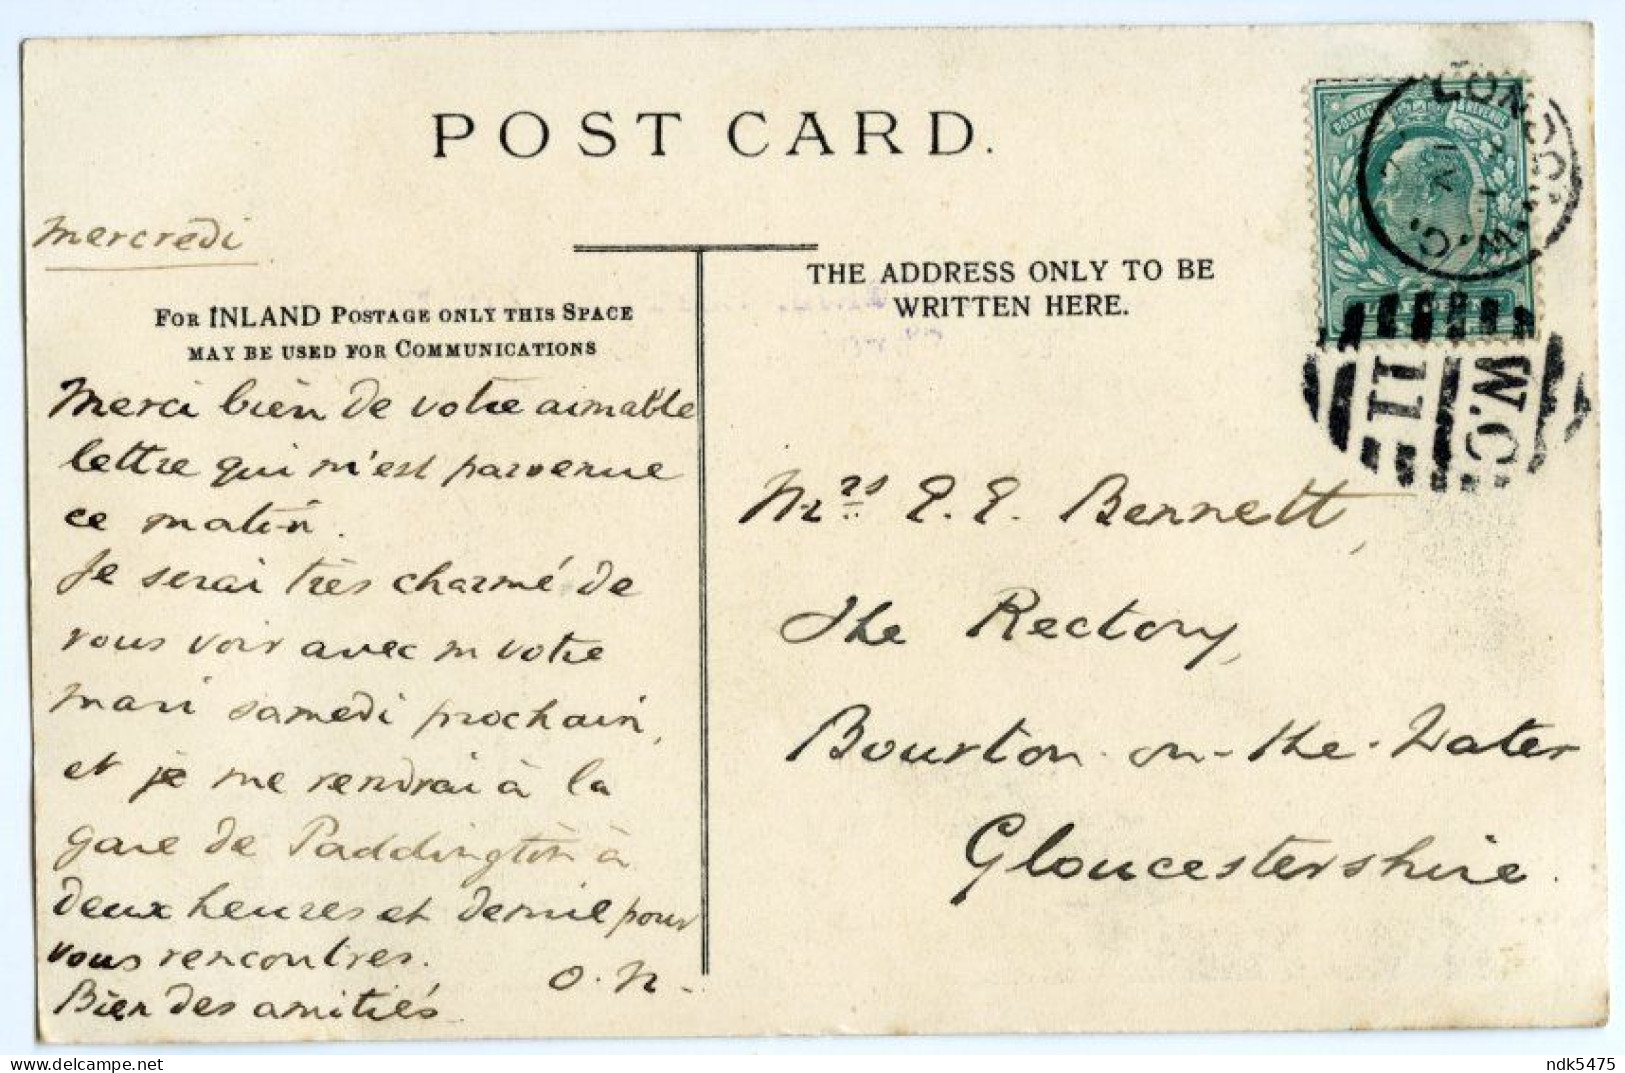 POST CARD.
Mercredi
FOR INLAND POSTAGE ONLY THIS SPACE
MAY BE USED FOR COMMUNICATIONS
Merci bien de votre aimable
lettre qui m'est parvenue
ce matin.
Je serai très charmé de
vous voir avec m votre
mari samedi prochain,
et je me rendrai à la
gare de Paddington à
deux heures et demie pour
vous rencontrer.
O. N.
Bien des amitiés
THE ADDRESS ONLY TO BE
WRITTEN HERE.
POSTAGE REVENUE
LONDON
W.C.
11
W.C.
Mrs E. E. Bennett,
The Rectory,
Bourton-on-the-Water
Gloucestershire.
ndk5475